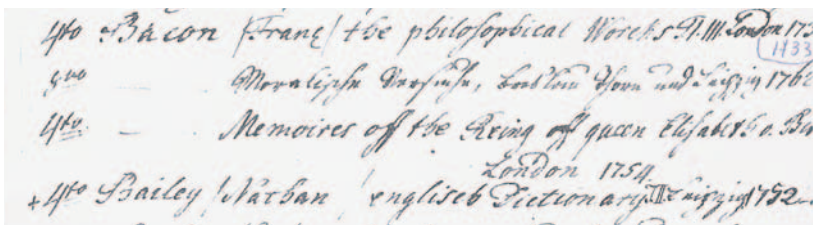 4to Bacon /Franç/ the philosophical Works T. III. London 173
1133
8vo — Moralische Versuche, Breslau Thorn und Leipzig 1762
4to — Memoires off the Reing off queen Elisabeth o. Ba
London 1754.
+ 4to Bailey /Nathan/ englisch Dictionary III Leipzig 1752.